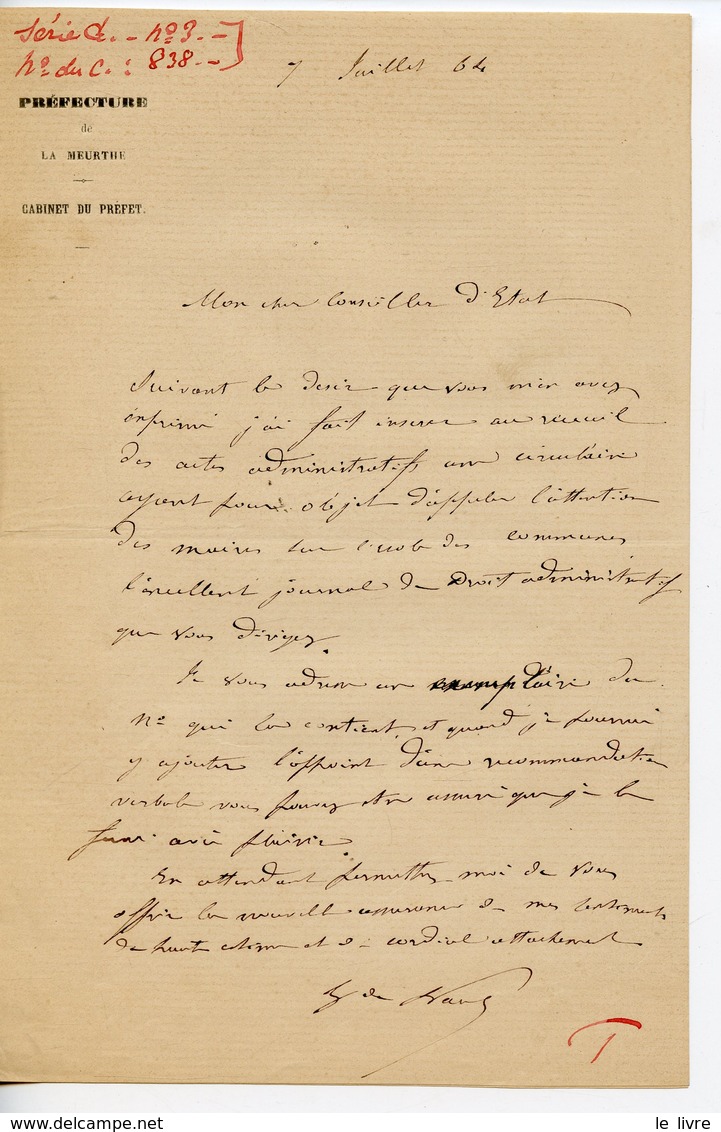 Série C. - No 3. -
No du C. : 838. -
7 Juillet 64
PRÉFECTURE
de
LA MEURTHE
CABINET DU PRÉFET.
Mon cher Conseiller d'Etat
Suivant le desir que vous m'en avez
exprimé j'ai fait inserer au recueil
des actes administratifs une circulaire
ayant pour objet d'appeler l'attention
des maires sur des communes
l'excellent journal de Droit administratif
que vous dirigez.
Je vous adresse un exemplaire du
No qui la contient, et quand je pourrai
y ajouter l'appoint d'une recommandation
verbale vous pouvez etre assuré que je le
ferai avec plaisir
En attendant permettez-moi de vous
offrir la nouvelle assurance de mes sentiments
de haute estime et de cordial attachement
de
T
le livre
www.delcampe.net